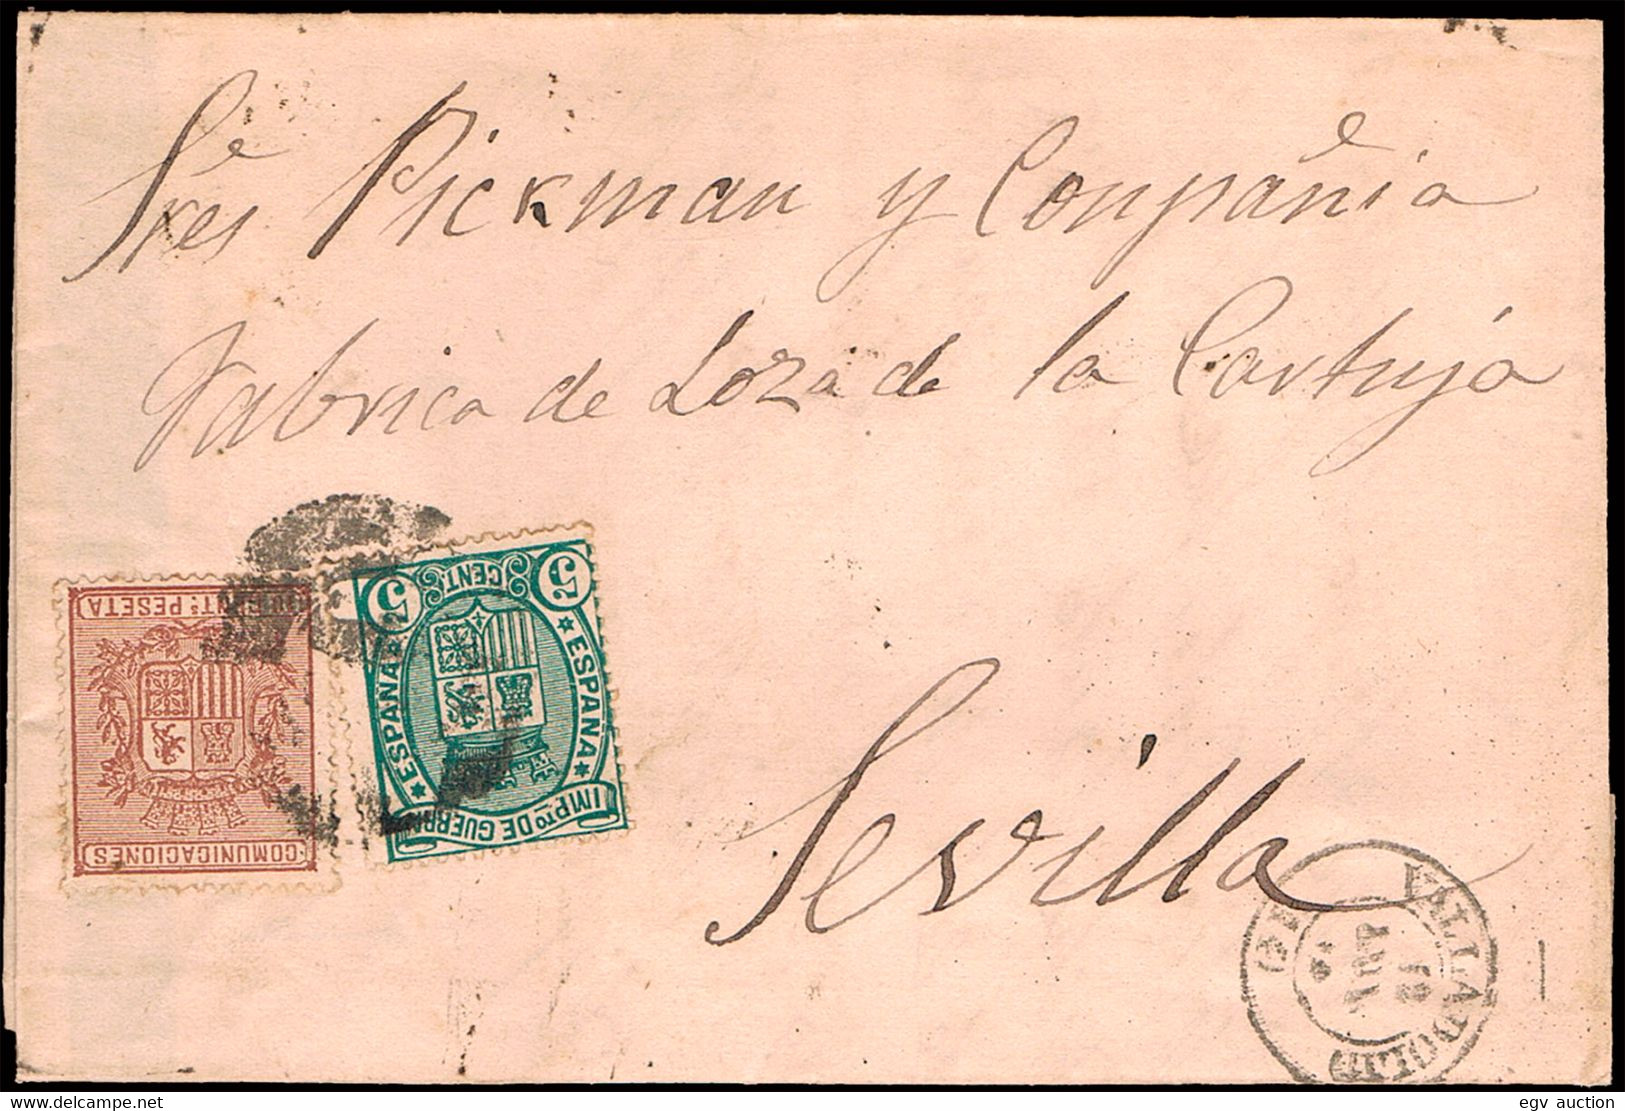 Sres Pickman y Compañia
Fabrica de Loza de la Cartuja
Sevilla
CENT. PESETA
COMUNICACIONES
5 CENT. 5
ESPAÑA
ESPAÑA
IMPTO DE GUERRA
VALLADOLID
www.delcampe.net
egv auction